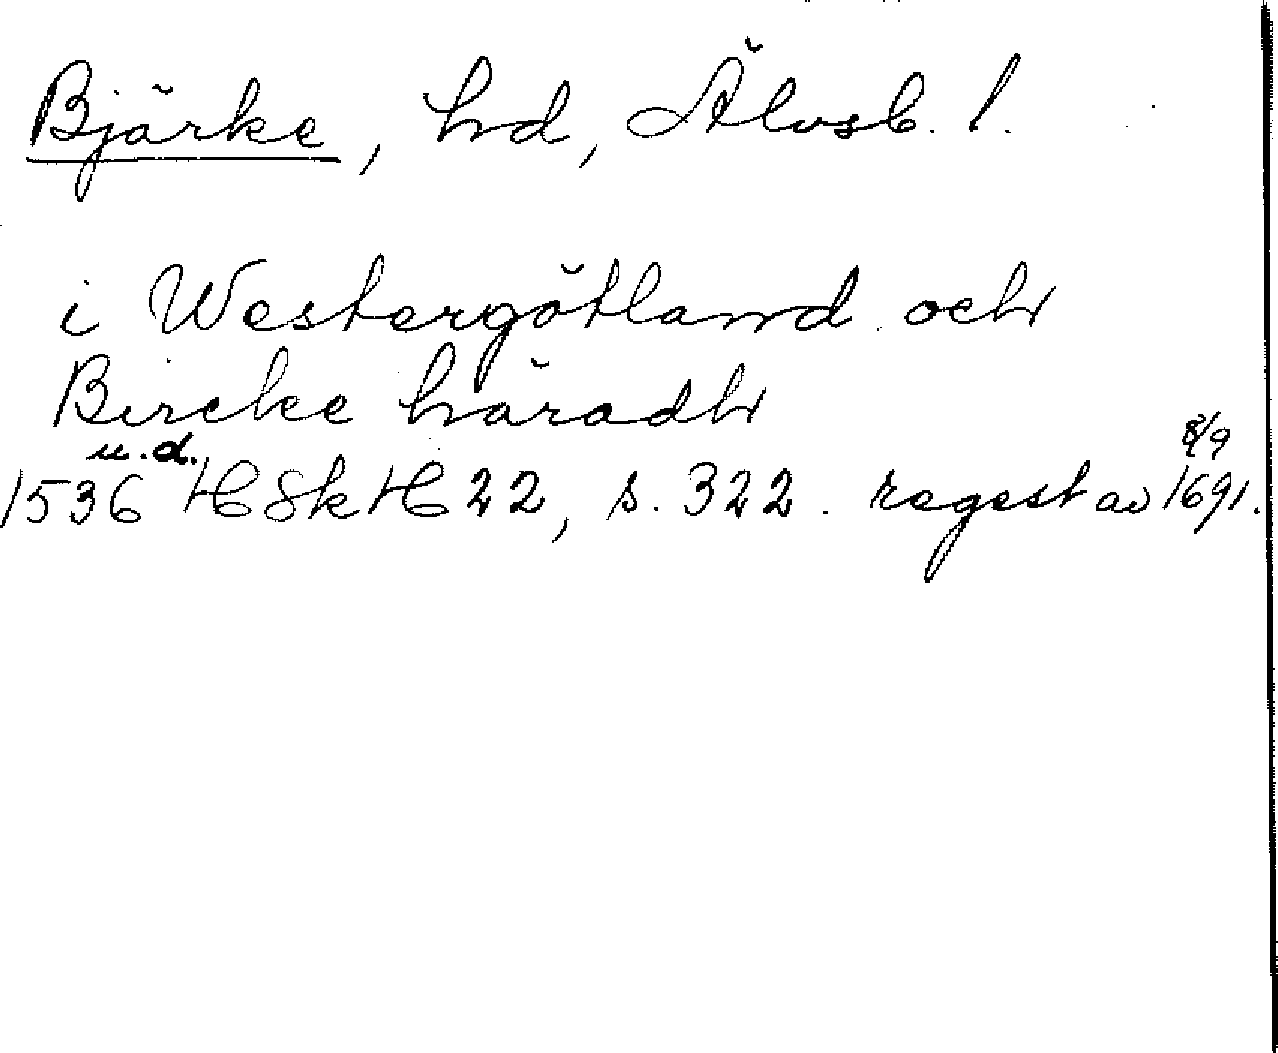 Bjärke, hd, Älvsb. l.
i Westergötland och
Bircke häradh
1536 u.d. HSkH 22, s. 322. regest av 8/9 1691.